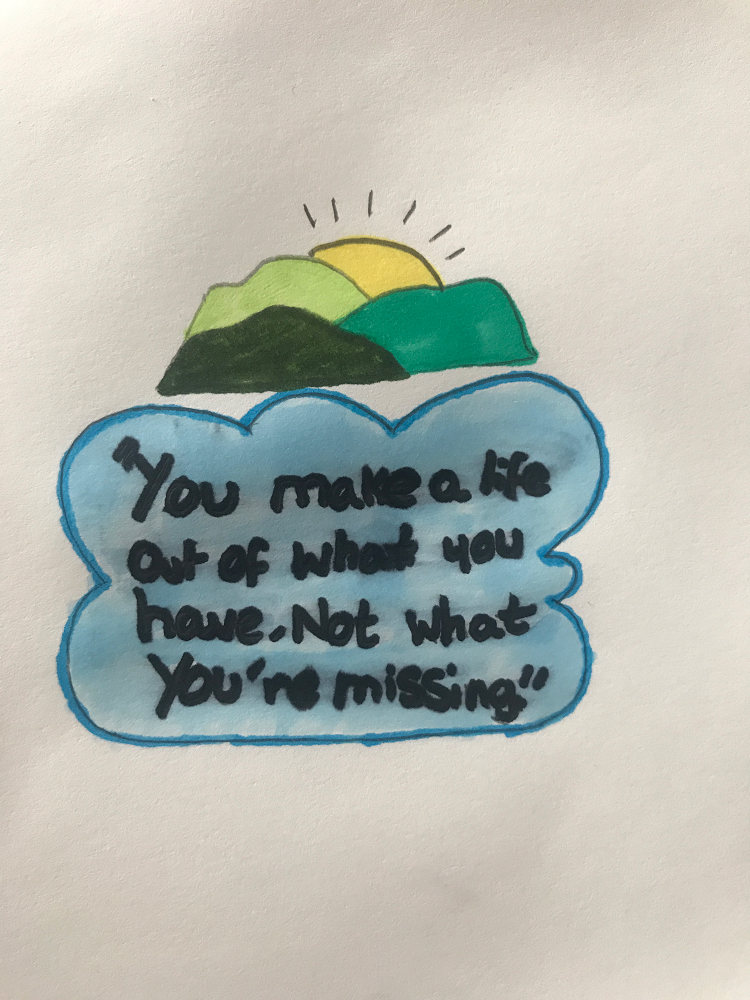 "You make a life
out of what you
have. Not what
You're missing"